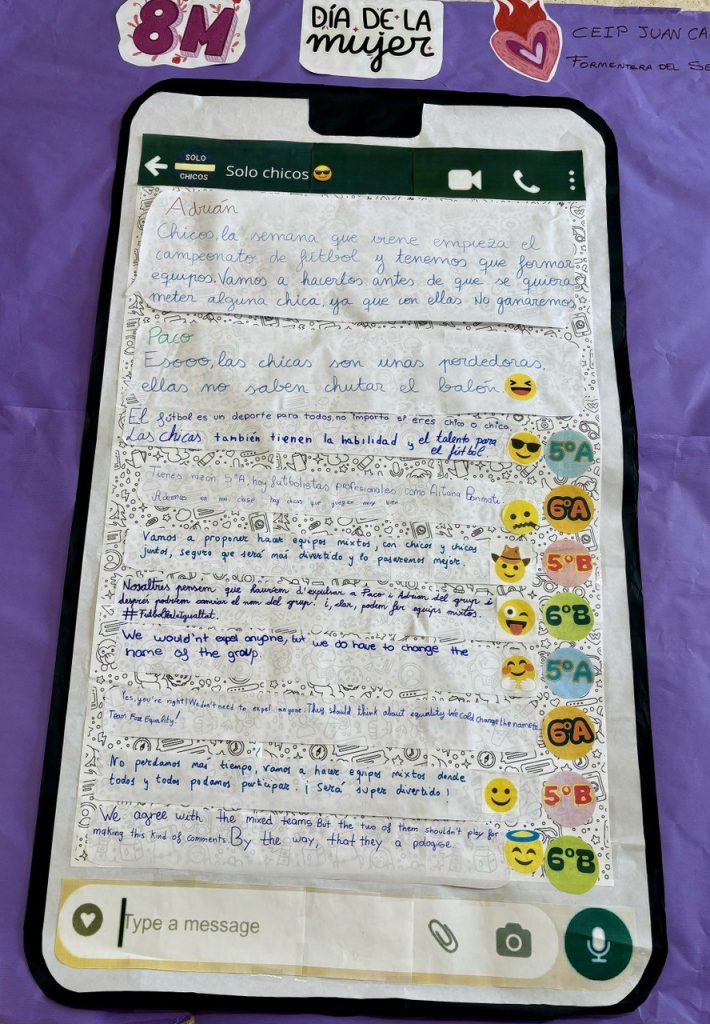 8M
DÍA DE LA
mujer
CEIP JUAN CA
FORMENTERA DEL SE
SOLO
CHICOS
Solo chicos
Adrián
Chicos, la semana que viene empieza el
campeonato de fútbol y tenemos que formar
equipos. Vamos a hacerlos antes de que se quiera
meter alguna chica, ya que con ellas No ganaremos
Paco
Esooo, las chicas son unas perdedoras,
ellas no saben chutar el balón.
El fútbol es un deporte para todos, no importa si eres chico o chica.
Las chicas también tienen la habilidad y el talento para
el fútbol
5ºA
Tienes razón 5ºA, hay futbolistas profesionales como Aitana Bonmatí.
Además en mi clase hay chicas que juegan muy bien
6ºA
Vamos a proponer hacer equipos mixtos, con chicos y chicas
juntos, seguro que será más divertido y lo pasaremos mejor.
5ºB
Nosaltres pensem que hauríem d'expulsar a Paco i Adrian del grup i
després podríem canviar el nom del grup. i, clar, podem fer equips mixtos.
6ºB
We would'nt expel anyone, but we do have to change the
name of the group.
5ºA
Yes, you're right! We don't need to expel anyone. They should think about equality. We cold change the name to
Team For Equality!
6ºA
No perdamos mas tiempo, vamos a hacer equipos mixtos donde
todos y todas podamos participar. ¡Será super divertido!
5ºB
We agree with the mixed teams. But the two of them shouldn't play for
making this kind of comments. By the way, that they a pologise
6ºB
Type a message